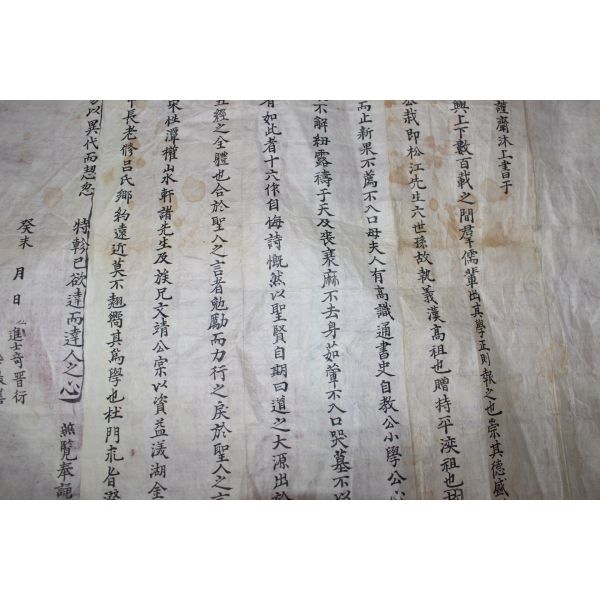 謹齋沐上書于
興上下數百載之間君子儒輩出其學正則報之也崇其德盛
公哉即松江先生六世孫故執義漢高祖也贈持平渶祖也
而止新果不薦不入口母夫人有高識通書史自教公小學公心
不解紐露禱于天及喪衰麻不去身茹葷不入口哭墓不以
有如此者十六作自悔詩慨然以聖賢自期曰道之大源出於
五經之全體也合於聖人之言者勉勵而力行之戾於聖人之言
杜潭權山水軒諸先生及族兄文靖公宗以資益渼湖金
長老修呂氏鄉約遠近莫不翹嚮其為學也杜門
以異代而愬忽 特軫己欲達而達人之心 照覽奉
癸未 月 日 進士奇晉衍